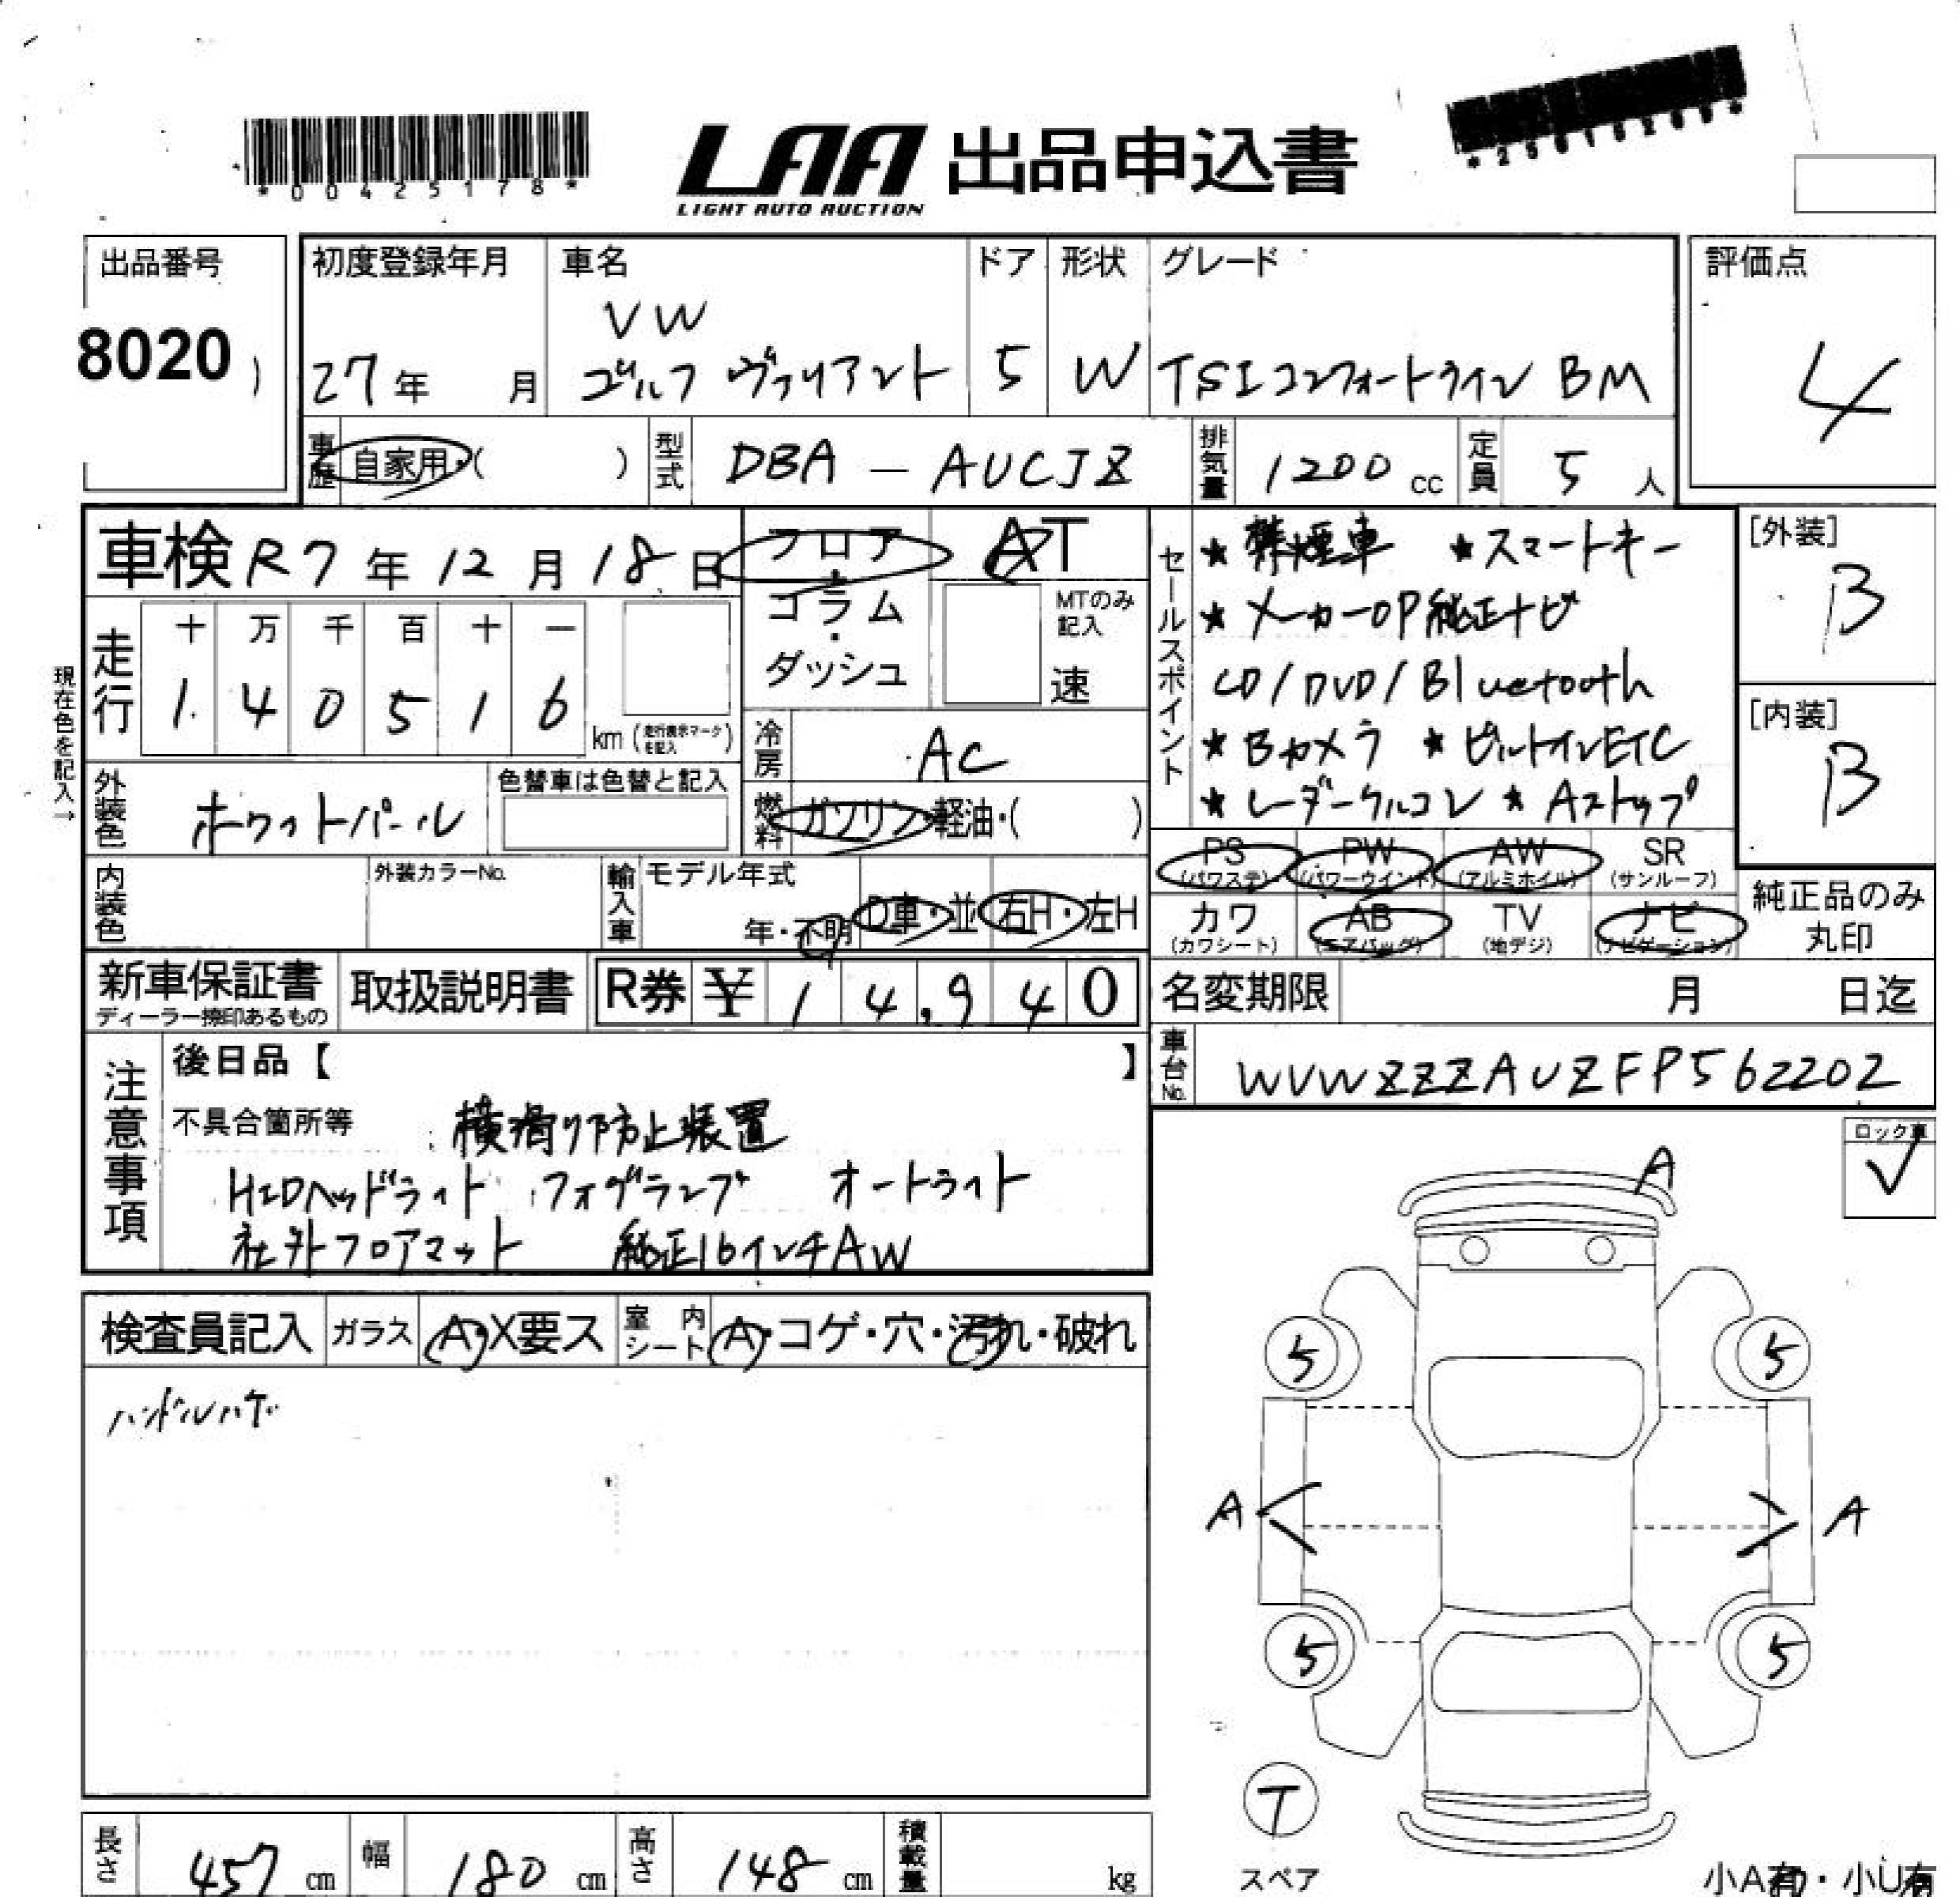 *00425178*
LAA 出品申込書
LIGHT AUTO AUCTION
出品番号
8020
初度登録年月
27年 月
車名
VW
ゴルフ ヴァリアント
ドア
5
形状
W
グレード
TSIコンフォートライン BM
評価点
4
車歴 自家用・( )
型式 DBA - AUCJZ
排気量 1200 cc
定員 5 人
車検 R7年 12月 18日
フロア・コラム・ダッシュ
AT
MTのみ記入
速
走行
十 万 千 百 十 一
1 4 0 5 1 6 km (走行表示マークを記入)
現在色を記入→
冷房 AC
外装色 ホワイトパール
色替車は色替と記入
燃料 ガソリン・軽油・( )
内装色
外装カラーNo.
輸入車 モデル年式
年・不明 D車・並 右H・左H
セールスポイント
★禁煙車 ★スマートキー
★メーカーOP純正ナビ
CD/DVD/Bluetooth
★Bカメラ ★ビルトインETC
★レーダークルコン ★Aストップ
[外装]
B
[内装]
B
PS (パワステ) PW (パワーウインド) AW (アルミホイル) SR (サンルーフ)
カワ (カワシート) AB (エアバッグ) TV (地デジ) ナビ (ナビゲーション)
純正品のみ
丸印
新車保証書
ディーラー捺印あるもの
取扱説明書
R券 ¥ 14,940
名変期限 月 日迄
車台No. WVWZZZAUZFP562202
注意事項
後日品【 】
不具合箇所等 横滑り防止装置
HIDヘッドライト フォグランプ オートライト
社外フロアマット 純正16インチAW
ロック車
✓
検査員記入 ガラス A・X要ス 室内シート A・コゲ・穴・汚れ・破れ
ハンドルハゲ
A
5 5
A A
5 5
T
スペア
小A有・小U有
長さ 457 cm 幅 180 cm 高さ 148 cm 積載量 kg